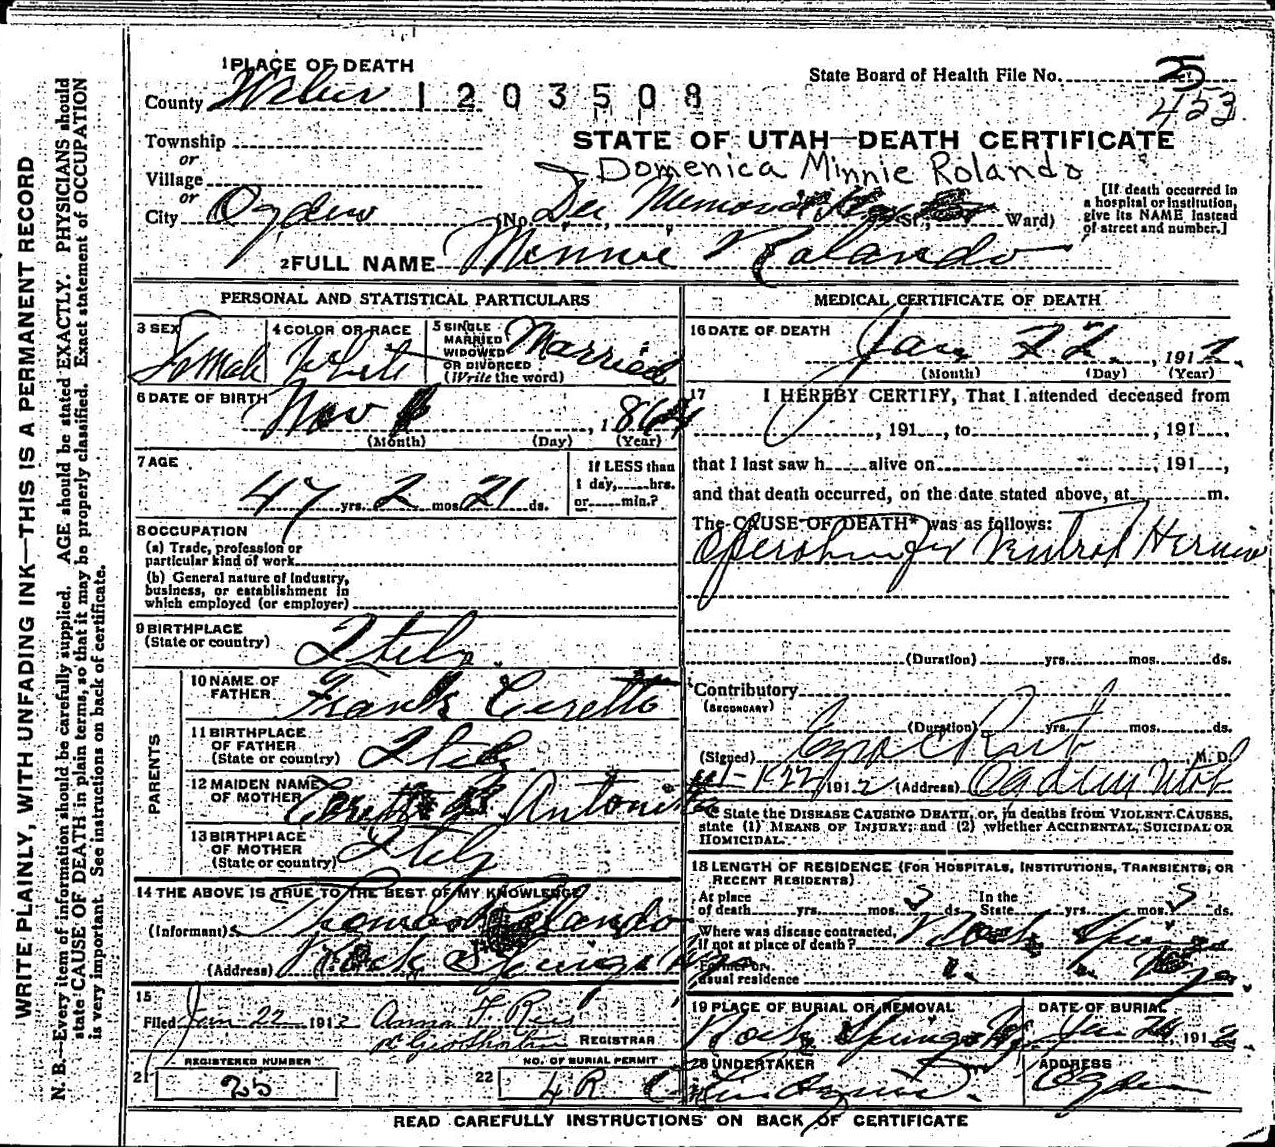 1 PLACE OF DEATH
State Board of Health File No. 25
453
County Weber 1203508
STATE OF UTAH—DEATH CERTIFICATE
Township
or
Village
or
Domenica Minnie Rolando
City Ogden (No. Dee Memorial St., Ward)
[If death occurred in
a hospital or institution,
give its NAME instead
of street and number.]
2 FULL NAME Minnie Rolando
PERSONAL AND STATISTICAL PARTICULARS
3 SEX Female
4 COLOR OR RACE White
5 SINGLE
MARRIED
WIDOWED
OR DIVORCED
(Write the word) Married
6 DATE OF BIRTH Nov , 1864
(Month) (Day) (Year)
7 AGE
47 yrs. 2 mos. 21 ds.
If LESS than
1 day, hrs.
or min.?
8 OCCUPATION
(a) Trade, profession or
particular kind of work
(b) General nature of industry,
business, or establishment in
which employed (or employer)
9 BIRTHPLACE
(State or country) Italy
PARENTS
10 NAME OF
FATHER Frank Ceretto
11 BIRTHPLACE
OF FATHER
(State or country) Italy
12 MAIDEN NAME
OF MOTHER
13 BIRTHPLACE
OF MOTHER
(State or country) Italy
14 THE ABOVE IS TRUE TO THE BEST OF MY KNOWLEDGE
(Informant) Thomas Rolando
(Address) Rock Springs Wyo
15
Filed Jan 22 1912 Anna F.
REGISTRAR
REGISTERED NUMBER
21 25
NO. OF BURIAL PERMIT
22 4 R
MEDICAL CERTIFICATE OF DEATH
16 DATE OF DEATH
Jan 22, 1912
(Month) (Day) (Year)
17 I HEREBY CERTIFY, That I attended deceased from
, 191 , to , 191 ,
that I last saw h alive on , 191 ,
and that death occurred, on the date stated above, at m.
The CAUSE OF DEATH* was as follows:
Operation for Ventral Hernia
(Duration) yrs. mos. ds.
Contributory
(SECONDARY)
(Duration) yrs. mos. ds.
(Signed) M. D.
1-22 1912 (Address) Ogden Utah
* State the DISEASE CAUSING DEATH, or, in deaths from VIOLENT CAUSES,
state (1) MEANS OF INJURY; and (2) whether ACCIDENTAL, SUICIDAL OR
HOMICIDAL.
18 LENGTH OF RESIDENCE (FOR HOSPITALS, INSTITUTIONS, TRANSIENTS, OR
RECENT RESIDENTS)
At place
of death yrs. mos. 5 ds.
In the
State yrs. mos. 5 ds.
Where was disease contracted,
if not at place of death? Rock Springs
Former or
usual residence Wyo.
19 PLACE OF BURIAL OR REMOVAL
Rock Springs Wyo.
DATE OF BURIAL
Jan , 191
20 UNDERTAKER
ADDRESS
Ogden
READ CAREFULLY INSTRUCTIONS ON BACK OF CERTIFICATE
WRITE PLAINLY, WITH UNFADING INK—THIS IS A PERMANENT RECORD
N. B.—Every item of information should be carefully supplied. AGE should be stated EXACTLY. PHYSICIANS should
state CAUSE OF DEATH in plain terms, so that it may be properly classified. Exact statement of OCCUPATION
is very important. See instructions on back of certificate.